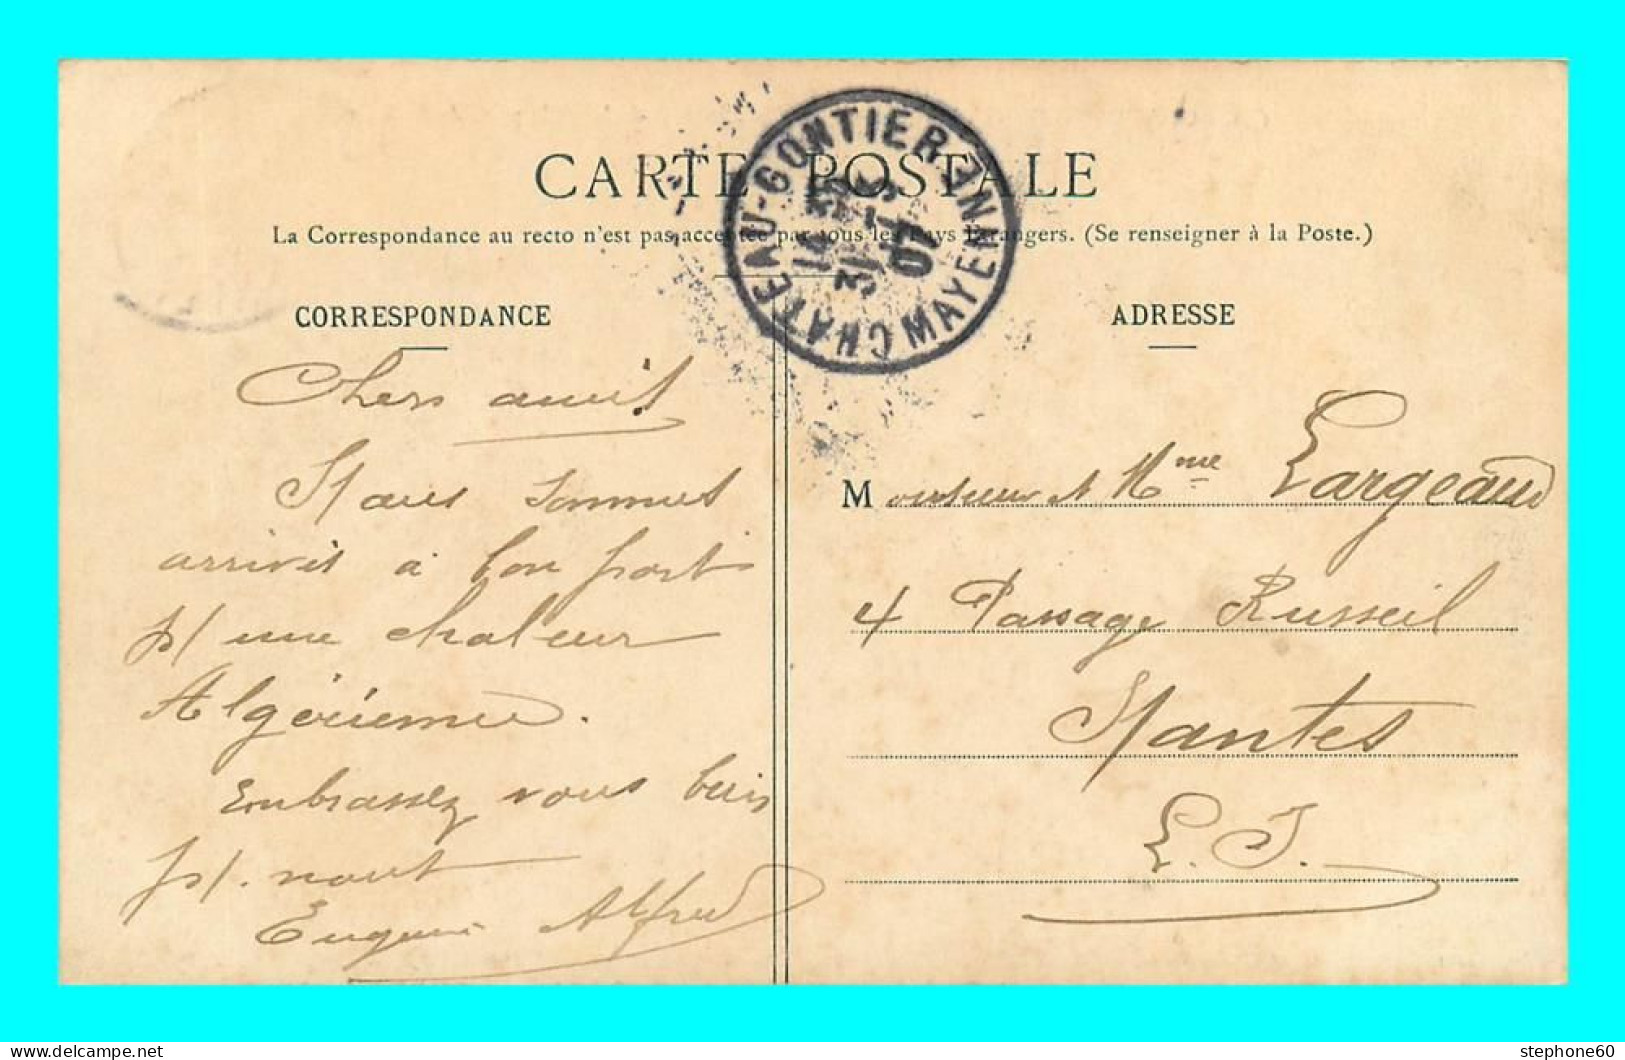 CARTE POSTALE
La Correspondance au recto n'est pas acceptée par tous les Pays Etrangers. (Se renseigner à la Poste.)
CHATEAU-GONTIER
MAYENNE
31-3
07
CORRESPONDANCE
Chers amis
Nous sommes
arrivés à bon port
p/ une chaleur
Algérienne.
Embrassez vous bien
p/. nous
Eugénie Alfred
ADRESSE
Monsieur et Mme Largeaud
4 Passage Russeil
Nantes
L. I.
stephone60